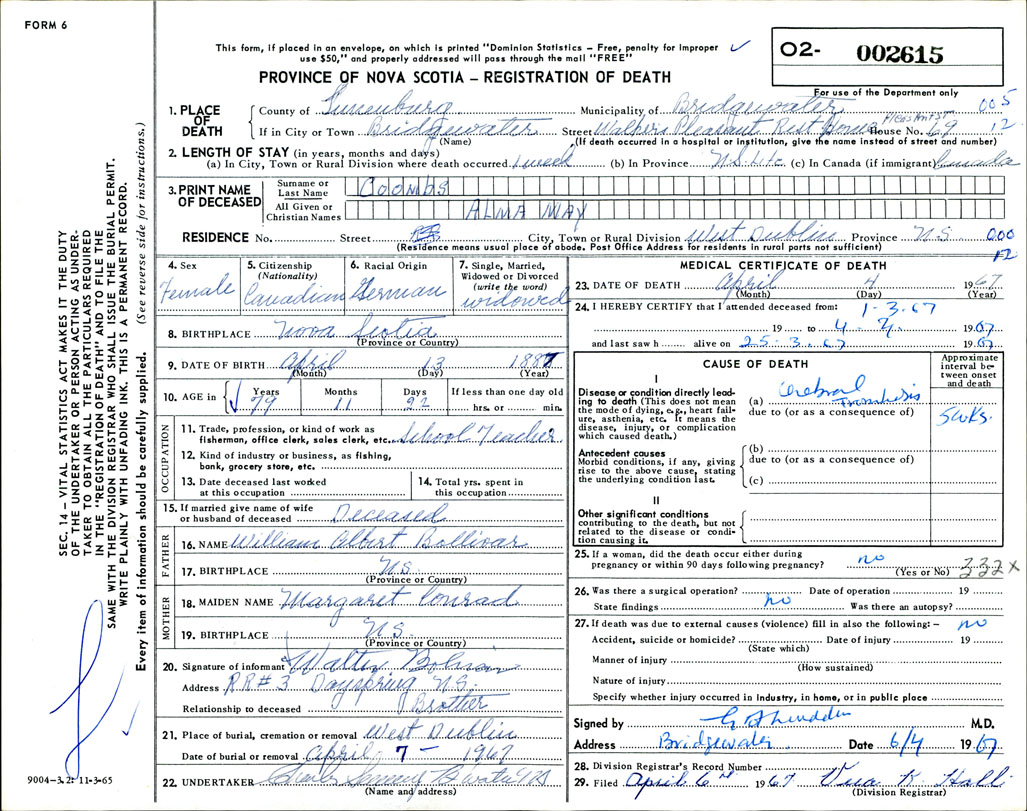 FORM 6
This form, if placed in an envelope, on which is printed "Dominion Statistics – Free, penalty for improper
use $50," and properly addressed will pass through the mail "FREE"
O2- 002615
For use of the Department only
PROVINCE OF NOVA SCOTIA – REGISTRATION OF DEATH
SEC. 14 – VITAL STATISTICS ACT MAKES IT THE DUTY
OF THE UNDERTAKER OR PERSON ACTING AS UNDER-
TAKER TO OBTAIN ALL THE PARTICULARS REQUIRED
IN THE "REGISTRATION OF DEATH" AND TO FILE THE
SAME WITH THE DIVISION REGISTRAR WHO SHALL ISSUE THE BURIAL PERMIT.
WRITE PLAINLY WITH UNFADING INK. THIS IS A PERMANENT RECORD.
Every item of information should be carefully supplied. (See reverse side for instructions.)
1. PLACE OF DEATH
County of Lunenburg Municipality of Bridgewater 005
If in City or Town Bridgewater Street Pleasant Rest Home Pleasant ST House No. 69 12
(Name) (If death occurred in a hospital or institution, give the name instead of street and number)
2. LENGTH OF STAY (in years, months and days)
(a) In City, Town or Rural Division where death occurred 1 week (b) In Province N.S. Life (c) In Canada (if immigrant) Canada
3. PRINT NAME OF DECEASED
Surname or Last Name COOMBS
All Given or Christian Names ALMA MAY
RESIDENCE No. Street City, Town or Rural Division West Dublin Province N.S. 000
(Residence means usual place of abode. Post Office Address for residents in rural parts not sufficient) 12
4. Sex Female
5. Citizenship (Nationality) Canadian
6. Racial Origin German
7. Single, Married, Widowed or Divorced (write the word) widowed
8. BIRTHPLACE Nova Scotia
(Province or Country)
9. DATE OF BIRTH April 13 1887
(Month) (Day) (Year)
10. AGE in Years 79 Months 11 Days 22 If less than one day old hrs. or min.
OCCUPATION
11. Trade, profession, or kind of work as
fisherman, office clerk, sales clerk, etc. School Teacher
12. Kind of industry or business, as fishing,
bank, grocery store, etc.
13. Date deceased last worked at this occupation
14. Total yrs. spent in this occupation
15. If married give name of wife
or husband of deceased Deceased
FATHER
16. NAME William Albert Bollivar
17. BIRTHPLACE N.S.
(Province or Country)
MOTHER
18. MAIDEN NAME Margaret Conrad
19. BIRTHPLACE N.S.
(Province or Country)
20. Signature of informant Walter Bolivar
Address RR# 3 Dayspring N.S.
Relationship to deceased Brother
21. Place of burial, cremation or removal West Dublin
Date of burial or removal April 7 – 1967
22. UNDERTAKER
(Name and address)
9004-3.2: 11-3-65
MEDICAL CERTIFICATE OF DEATH
23. DATE OF DEATH April 4 1967
(Month) (Day) (Year)
24. I HEREBY CERTIFY that I attended deceased from: 1-3-67
19 to 4 19 67
and last saw h alive on 25-3-67 19 67
CAUSE OF DEATH
Approximate interval between onset and death
I
Disease or condition directly lead-
ing to death (This does not mean
the mode of dying, e.g., heart fail-
ure, asthenia, etc. It means the
disease, injury, or complication
which caused death.)
(a) Cerebral Thrombosis 5 wks.
due to (or as a consequence of)
Antecedent causes
Morbid conditions, if any, giving
rise to the above cause, stating
the underlying condition last.
(b)
due to (or as a consequence of)
(c)
II
Other significant conditions
contributing to the death, but not
related to the disease or condi-
tion causing it.
25. If a woman, did the death occur either during
pregnancy or within 90 days following pregnancy? no 332 X
(Yes or No)
26. Was there a surgical operation? no Date of operation 19
State findings Was there an autopsy?
27. If death was due to external causes (violence) fill in also the following: – no
Accident, suicide or homicide? Date of injury 19
(State which)
Manner of injury
(How sustained)
Nature of injury
Specify whether injury occurred in Industry, in home, or in public place
Signed by M.D.
Address Bridgewater Date 6/4 19 67
28. Division Registrar's Record Number
29. Filed April 6th 1967
(Division Registrar)